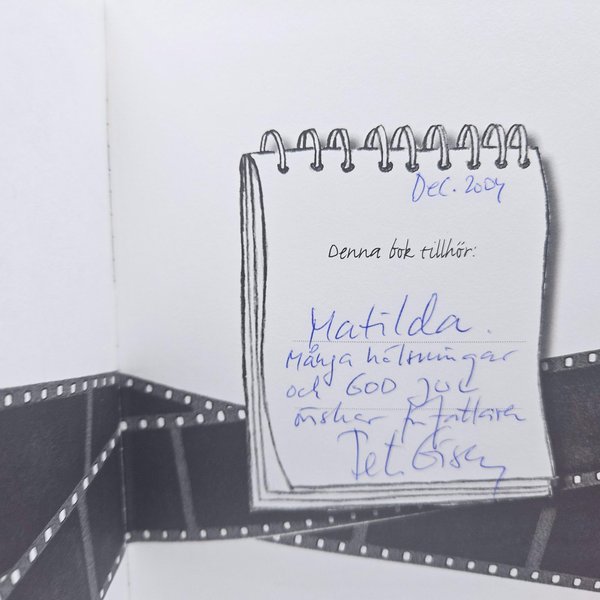 Dec. 2004
Denna bok tillhör:
Matilda.
Många hälsningar
och GOD JUL
önskar författaren